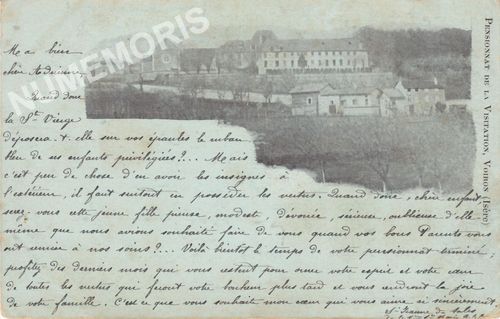 PENSIONNAT DE LA VISITATION, VOIRON (Isère)
NUMEMORIS
Ma bien
chère
Quand donc
la Ste Vierge
déposera-t-elle sur vos épaules le ruban
bleu de ses enfants privilégiés?... Mais
c'est peu de chose d'en avoir les insignes à
l'extérieur, il faut surtout en posséder les vertus. Quand donc, chère enfant,
serez-vous cette jeune fille pieuse, modeste dévouée, sérieuse, oublieuse d'elle
même que nous avions souhaité faire de vous quand vos bons Parents vous
ont remise à nos soins?... Voilà bientôt le temps de votre pensionnat terminé;
profitez des derniers mois qui vous restent pour orner votre esprit et votre cœur
de toutes les vertus qui feront votre bonheur plus tard et vous rendront la joie
de votre famille. C'est ce que vous souhaite mon cœur qui vous aime si sincèrement.
Sr Jeanne de Sales